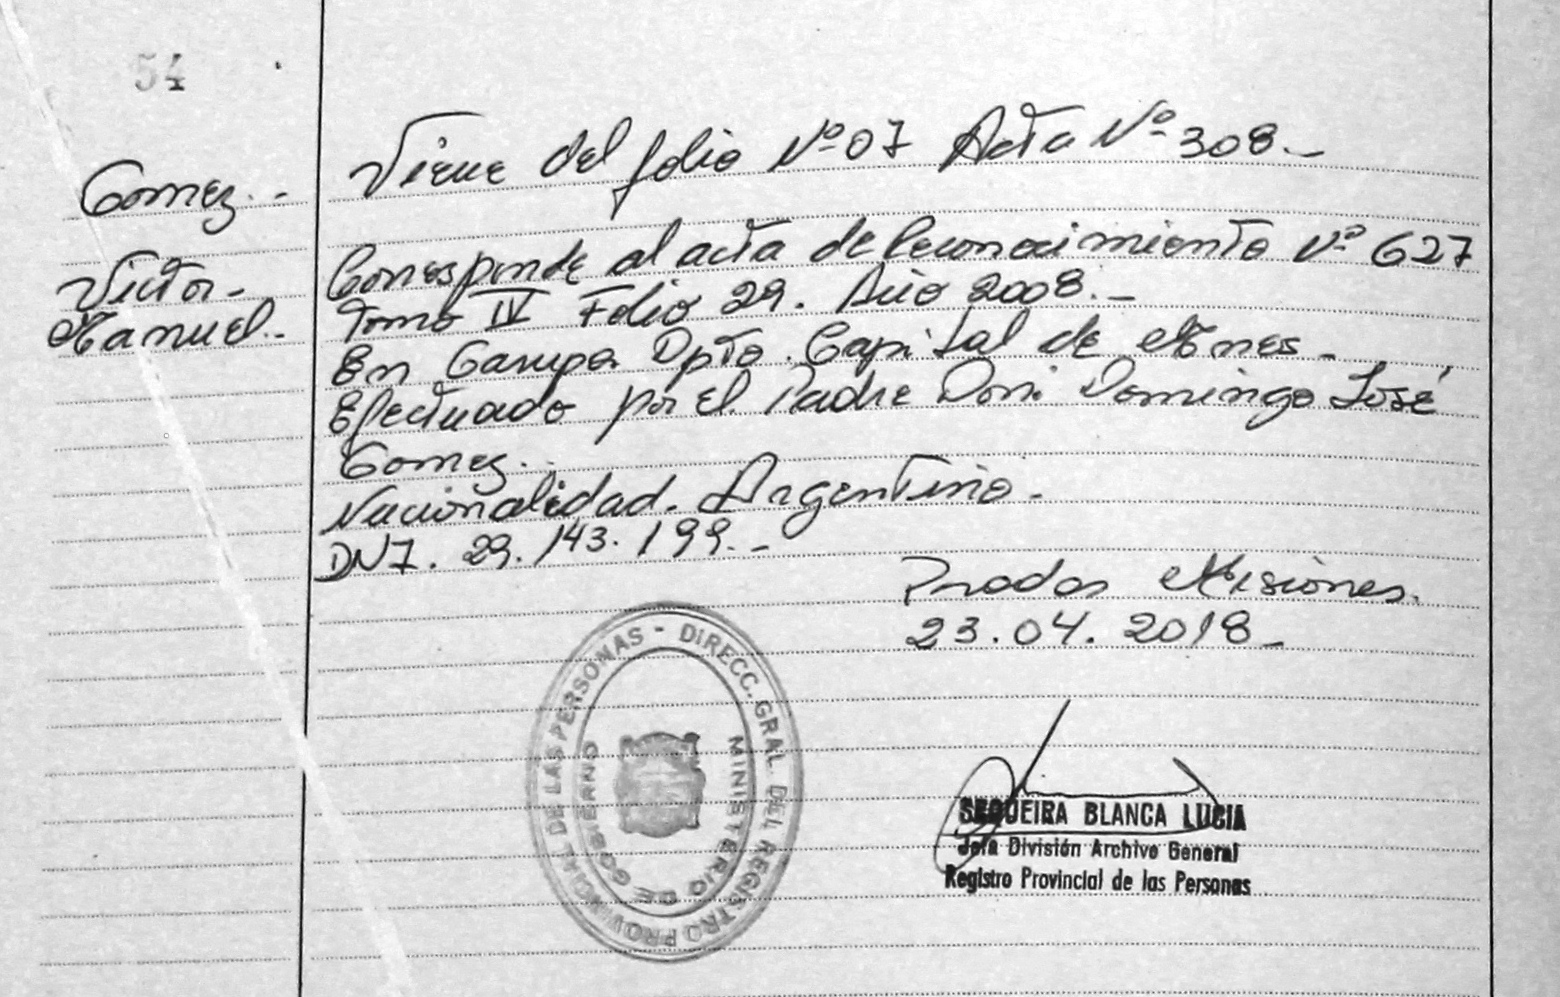 54
Gomez.-
Victor-
Manuel.-
Viene del folio Nº 07 Acta Nº 308.-
Corresponde al acta de Reconocimiento Nº 627
Tomo IV Folio 29. Año 2008.-
En Garupa Dpto. Capital de Mnes-
Efectuado por el Padre Don: Domingo José
Gomez..
Nacionalidad. Argentino.-
DNI. 29.143.199.-
Posadas Misiones.
23.04.2018-
DIRECC. GRAL. DEL REGISTRO PROVINCIAL DE LAS PERSONAS -
MINISTERIO DE GOBIERNO
SEQUEIRA BLANCA LUCIA
Jefa División Archivo General
Registro Provincial de las Personas